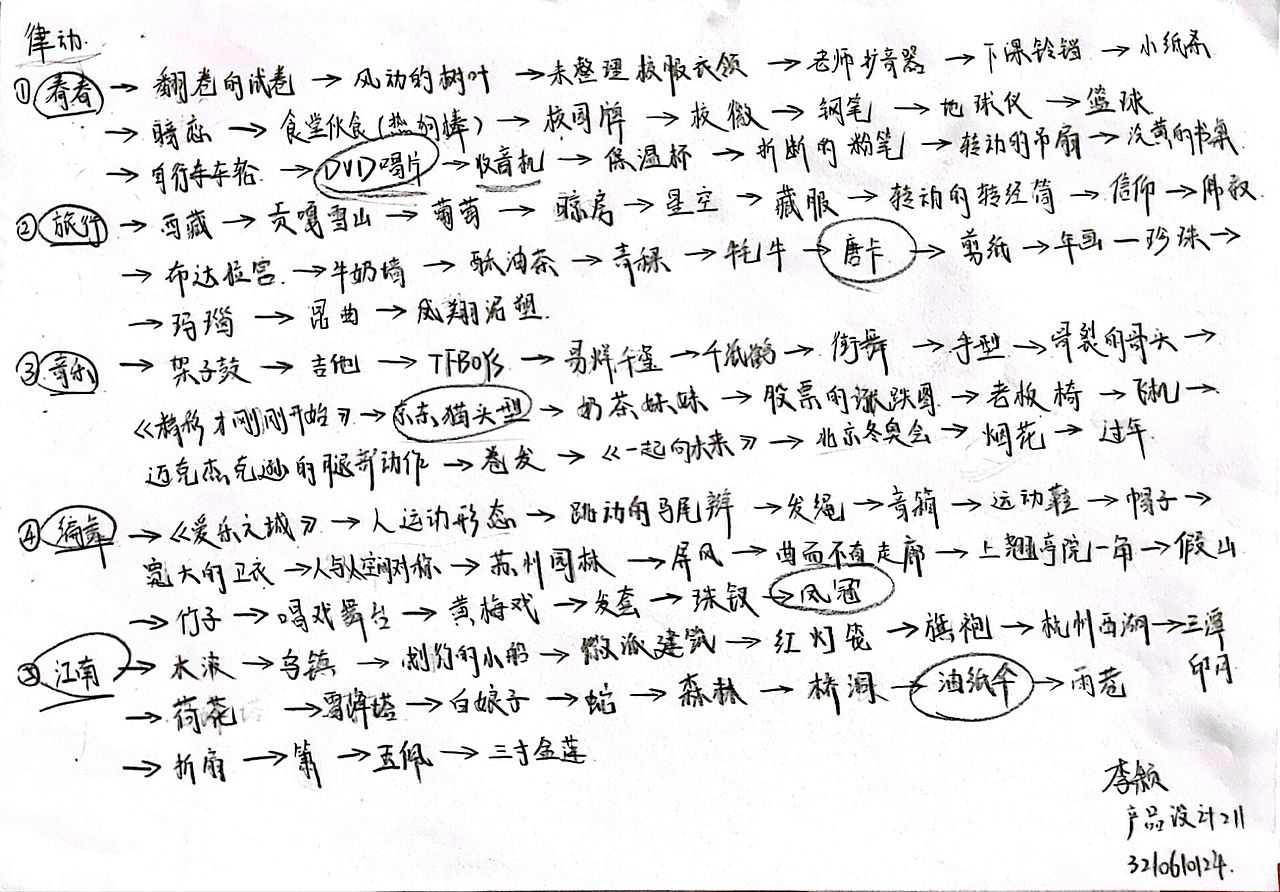 律动.
① 青春 → 翻卷的试卷 → 风动的树叶 → 未整理校服衣领 → 老师扩音器 → 下课铃铛 → 小纸条
→ 暗恋 → 食堂伙食(热狗棒) → 校园牌 → 校徽 → 钢笔 → 地球仪 → 篮球
→ 自行车车轮 → DVD唱片 → 收音机 → 保温杯 → 折断的粉笔 → 转动的吊扇 → 泛黄的书角
② 旅行 → 西藏 → 贡嘎雪山 → 葡萄 → 晾房 → 星空 → 藏服 → 转动的转经筒 → 信仰 → 佛教
→ 布达拉宫 → 牛奶墙 → 酥油茶 → 青稞 → 牦牛 → 唐卡 → 剪纸 → 年画 — 珍珠 →
→ 玛瑙 → 昆曲 → 凤翔泥塑.
③ 音乐 → 架子鼓 → 吉他 → TFBOYS → 易烊千玺 → 千纸鹤 → 街舞 → 手型 → 骨裂的骨头 →
《精彩才刚刚开始》 → 京东猫头型 → 奶茶妹妹 → 股票的涨跌图 → 老板椅 → 飞机 →
迈克杰克逊的腿部动作 → 卷发 → 《一起向未来》 → 北京冬奥会 → 烟花 → 过年
④ 编舞 → 《爱乐之城》 → 人运动形态 → 跳动的马尾辫 → 发绳 → 音箱 → 运动鞋 → 帽子 →
宽大的卫衣 → 人与人空间对称 → 苏州园林 → 屏风 → 曲而不直走廊 → 上翘亭院一角 → 假山
→ 竹子 → 唱戏舞台 → 黄梅戏 → 发套 → 珠钗 → 凤冠
⑤ 江南 → 水波 → 乌镇 → 划行的小船 → 徽派建筑 → 红灯笼 → 旗袍 → 杭州西湖 → 三潭印月
→ 荷花 → 雷峰塔 → 白娘子 → 蛇 → 森林 → 桥洞 → 油纸伞 → 雨巷
→ 折扇 → 箫 → 玉佩 → 三寸金莲
李颖
产品设计211
3210610124.